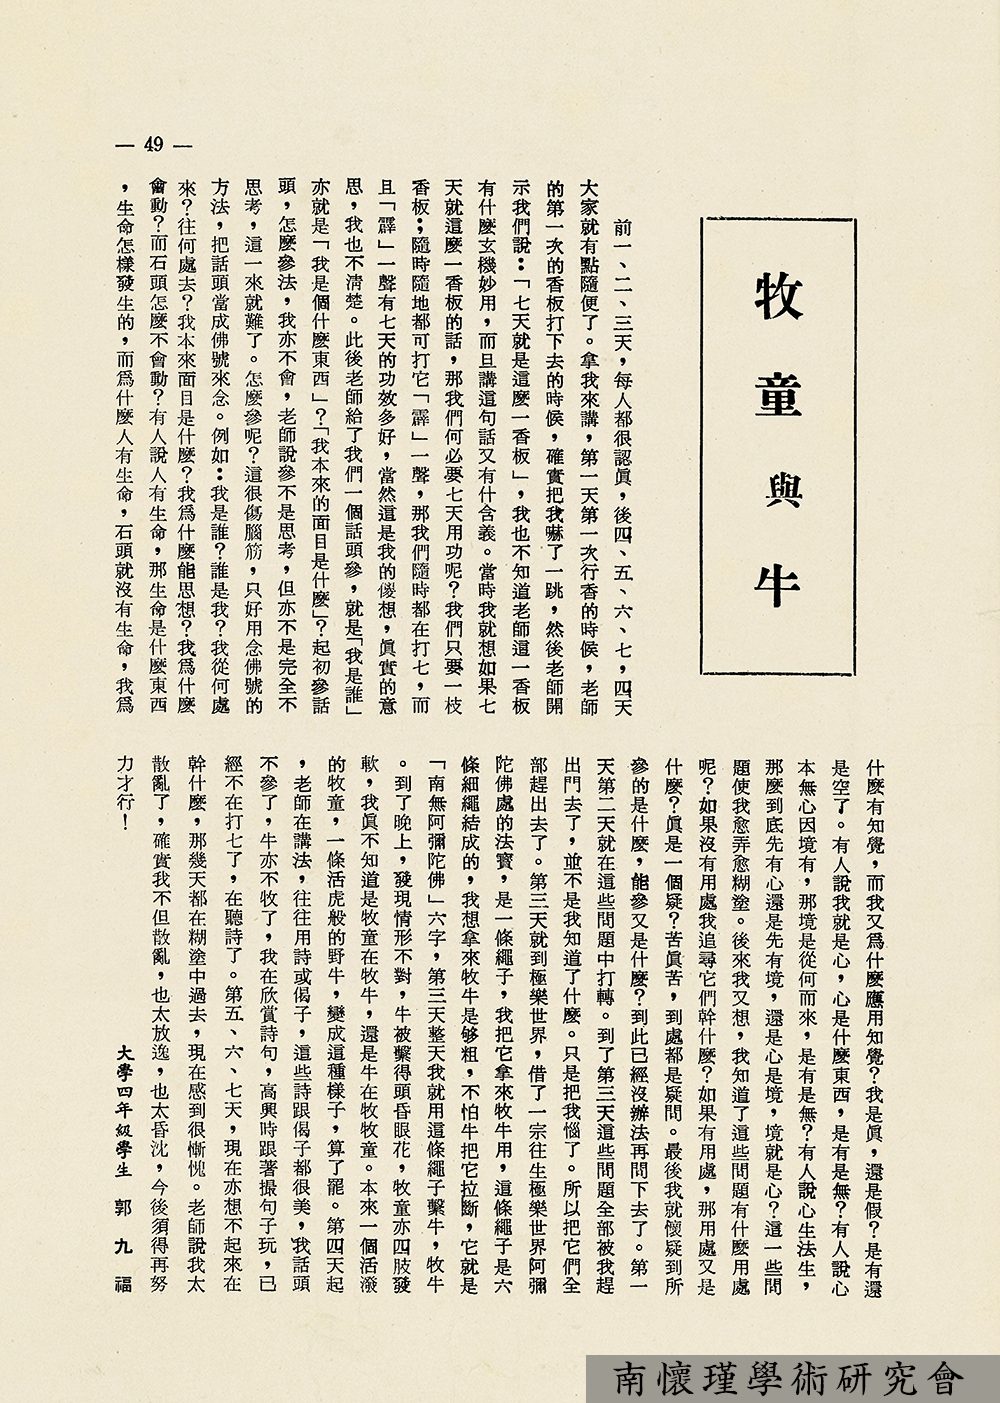 — 49 —
牧童與牛
前一、二、三天，每人都很認眞，後四、五、六、七，四天
大家就有點隨便了。拿我來講，第一天第一次行香的時候，老師
的第一次的香板打下去的時候，確實把我嚇了一跳，然後老師開
示我們說：「七天就是這麼一香板」，我也不知道老師這一香板
有什麼玄機妙用，而且講這句話又有什含義。當時我就想如果七
天就這麼一香板的話，那我們何必要七天用功呢？我們只要一枝
香板；隨時隨地都可打它「霹」一聲，那我們隨時都在打七，而
且「霹」一聲有七天的功效多好，當然這是我的傻想，眞實的意
思，我也不清楚。此後老師給了我們一個話頭參，就是「我是誰」
亦就是「我是個什麼東西」？「我本來的面目是什麼」？起初參話
頭，怎麼參法，我亦不會，老師說參不是思考，但亦不是完全不
思考，這一來就難了。怎麼參呢？這很傷腦筋，只好用念佛號的
方法，把話頭當成佛號來念。例如：我是誰？誰是我？我從何處
來？往何處去？我本來面目是什麼？我爲什麼能思想？我爲什麼
會動？而石頭怎麼不會動？有人說人有生命，那生命是什麼東西
，生命怎樣發生的，而爲什麼人有生命，石頭就沒有生命，我爲
什麼有知覺，而我又爲什麼應用知覺？我是眞，還是假？是有還
是空了。有人說我就是心，心是什麼東西，是有是無？有人說心
本無心因境有，那境是從何而來，是有是無？有人說心生法生，
那麼到底先有心還是先有境，還是心是境，境就是心？這一些問
題使我愈弄愈糊塗。後來我又想，我知道了這些問題有什麼用處
呢？如果沒有用處我追尋它們幹什麼？如果有用處，那用處又是
什麼？眞是一個疑？苦眞苦，到處都是疑問。最後我就懷疑到所
參的是什麼，能參又是什麼？到此已經沒辦法再問下去了。第一
天第二天就在這些問題中打轉。到了第三天這些問題全部被我趕
出門去了，並不是我知道了什麼。只是把我惱了。所以把它們全
部趕出去了。第三天就到極樂世界，借了一宗往生極樂世界阿彌
陀佛處的法寶，是一條繩子，我把它拿來牧牛用，這條繩子是六
條細繩結成的，我想拿來牧牛是够粗，不怕牛把它拉斷，它就是
「南無阿彌陀佛」六字，第三天整天我就用這條繩子繫牛，牧牛
。到了晚上，發現情形不對，牛被繫得頭昏眼花，牧童亦四肢發
軟，我眞不知道是牧童在牧牛，還是牛在牧牧童。本來一個活潑
的牧童，一條活虎般的野牛，變成這種樣子，算了罷。第四天起
，老師在講法，往往用詩或偈子，這些詩跟偈子都很美，我話頭
不參了，牛亦不收了，我在欣賞詩句，高興時跟著撮句子玩，已
經不在打七了，在聽詩了。第五、六、七天，現在亦想不起來在
幹什麼，那幾天都在糊塗中過去，現在感到很慚愧。老師說我太
散亂了，確實我不但散亂，也太放逸，也太昏沈，今後須得再努
力才行！
大學四年級學生 郭九福
南懷瑾學術研究會